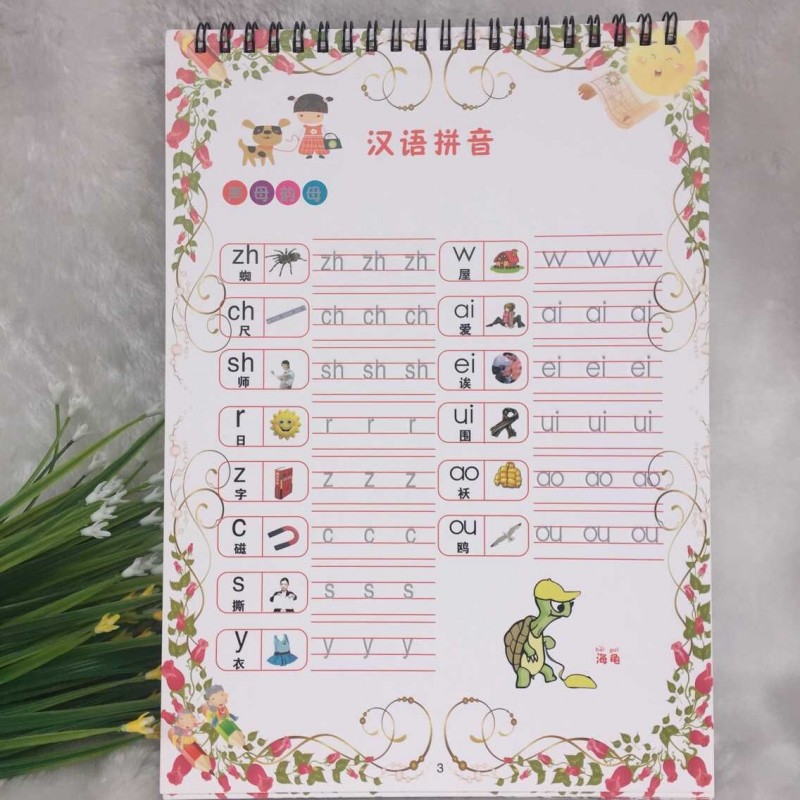 汉语拼音
声母韵母
zh zh zh zh
蜘
ch ch ch ch
尺
sh sh sh sh
师
r r r r
日
z z z z
字
c c c c
磁
s s s s
撕
y y y y
衣
w w w w
屋
ai ai ai ai
爱
ei ei ei ei
诶
ui ui ui ui
围
ao ao ao ao
袄
ou ou ou ou
鸥
hǎi guī
海龟
3